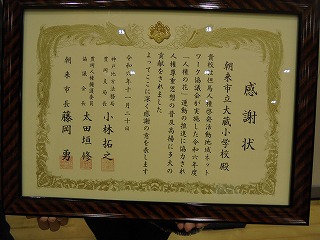 感謝状
朝来市立大蔵小学校殿
貴校は但馬人権啓発活動地域ネット
ワーク協議会が実施した令和六年度
「人権の花」運動の推進に協力され
人権尊重思想の普及高揚に多大の
貢献をされました
よってここに深く感謝の意を表します
令和六年十一月二十日
神戸地方法務局
豊岡支局長 小林拓之
豊岡人権擁護委員
協議会長 太田垣修
朝来市長 藤岡勇